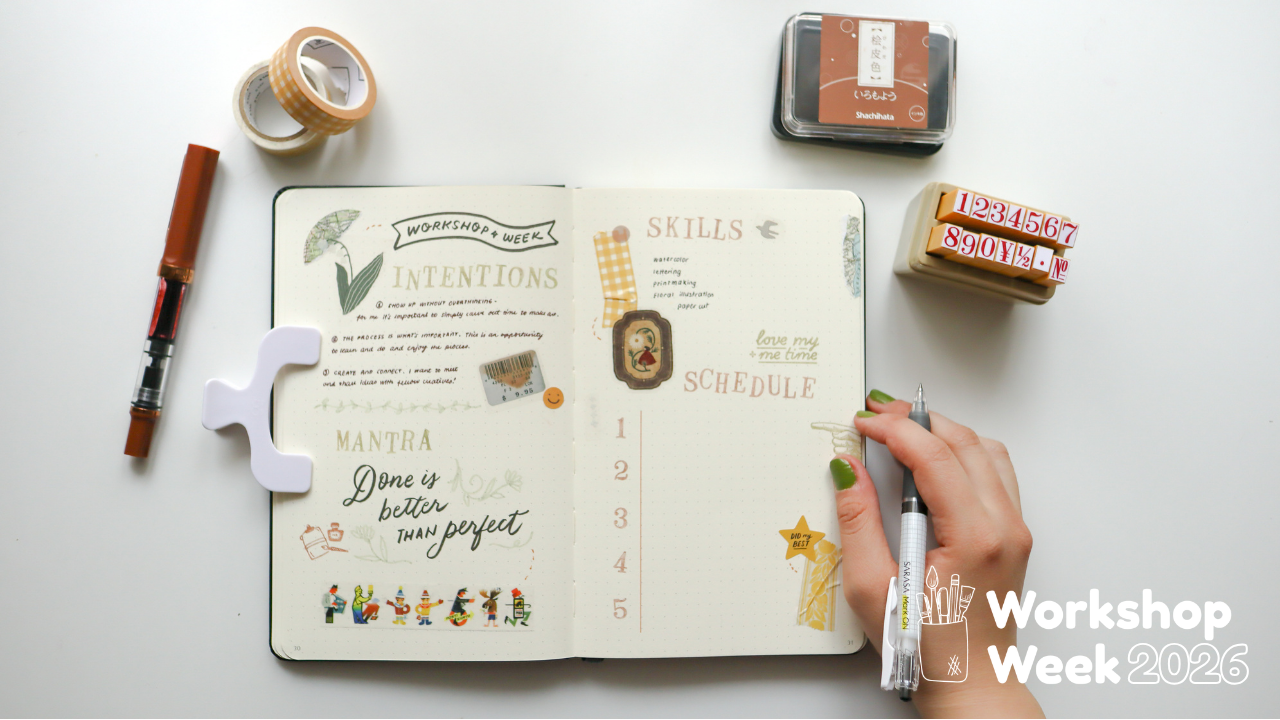 【桧皮色】
いろもよう
Shachihata
1234567
890¥½・№
WORKSHOP WEEK
INTENTIONS
① SHOW UP WITHOUT OVERTHINKING.
For me it's important to simply carve out time to make art.
② THE PROCESS IS WHAT'S IMPORTANT. This is an opportunity
to learn and do and enjoy the process.
③ CREATE AND CONNECT. I want to meet
and share ideas with fellow creatives!
$ 9.95
MANTRA
Done is
better
THAN perfect
SKILLS
watercolor
lettering
printmaking
floral illustration
paper cut
love my
me time
SCHEDULE
1
2
3
4
5
DID my
BEST
SARASA Mark ON
Workshop
Week 2026